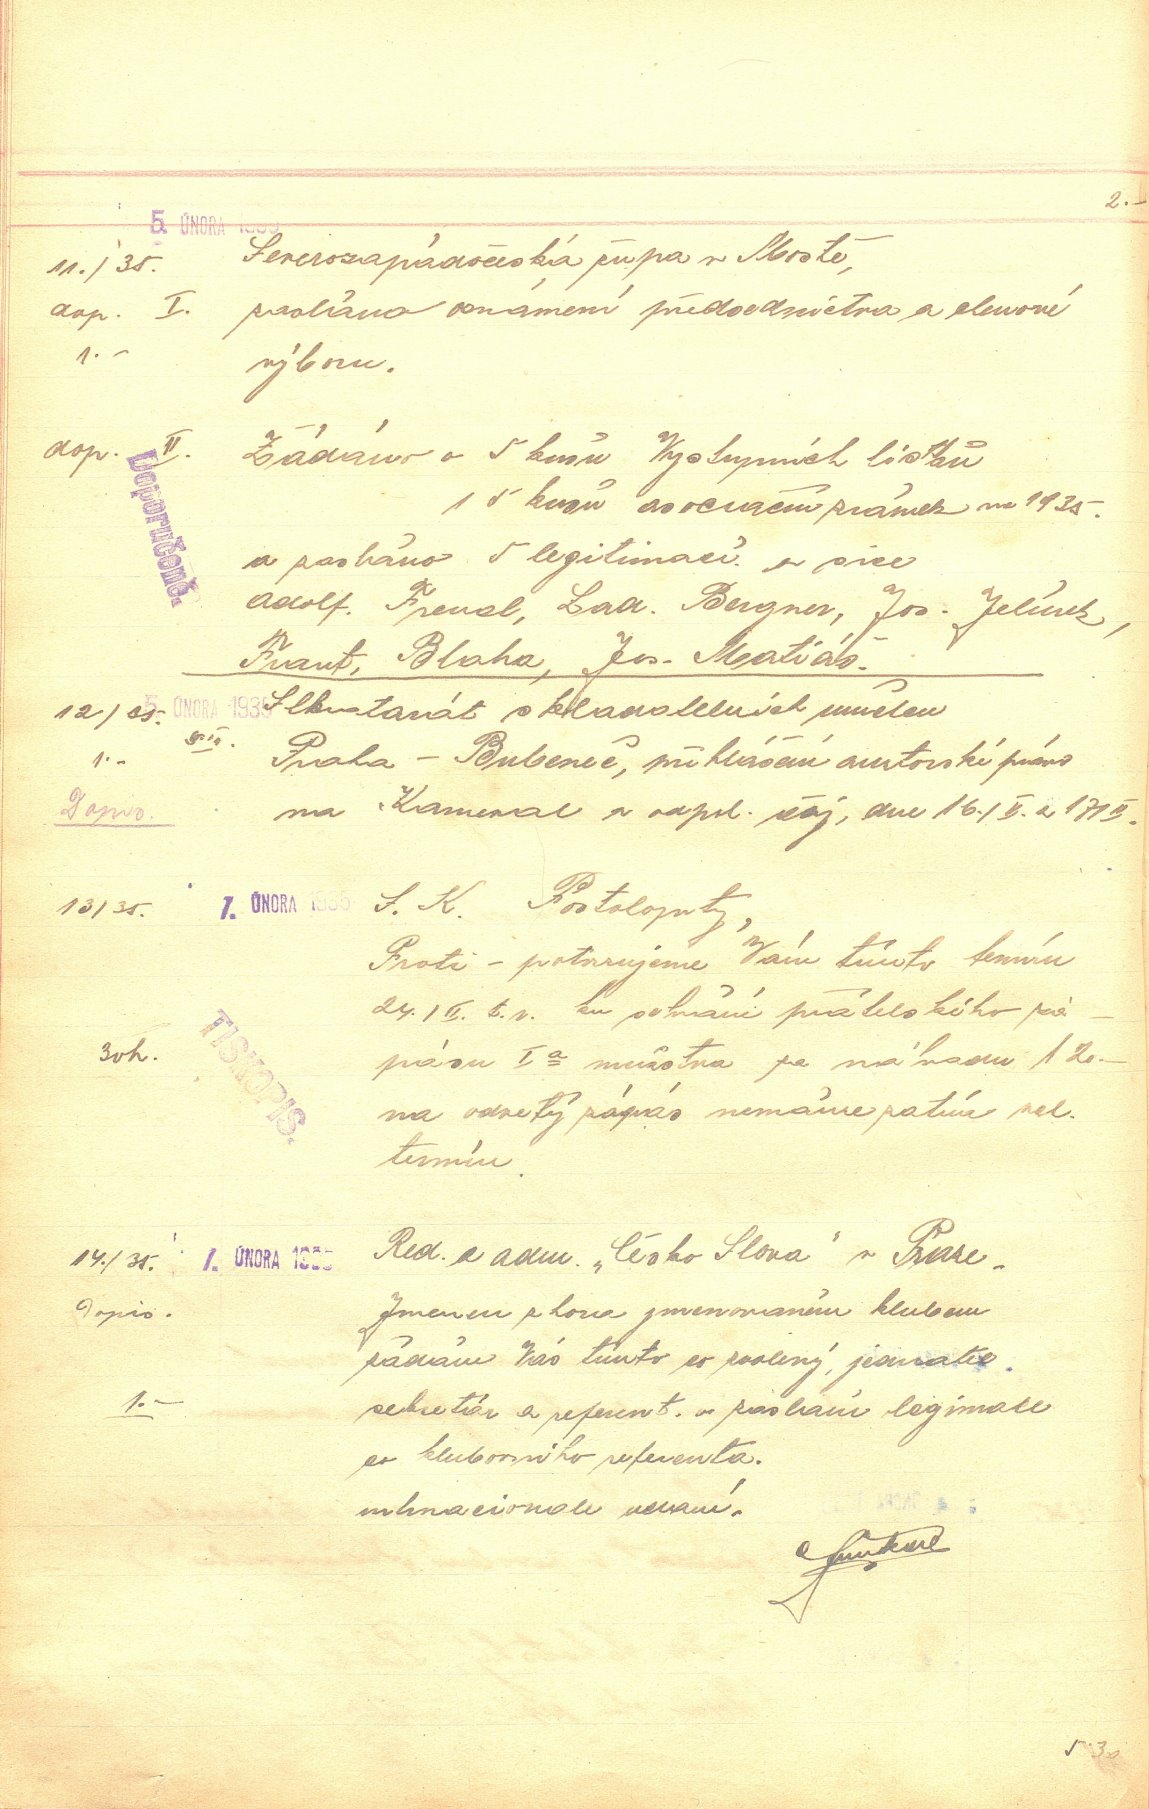 2.-
5. ÚNORA 1935
11./35. Severozápadočeská župa v Mostě,
dop. I. zasláno oznámení předsednictva a členové
1.- výboru.
dop. II. Žádáno o 5 kusů Výstupních lístků
Doporučeně.
15 kusů asociační známek na 1935.
a zasláno 5 legitimací. a sice
Adolf. Frendl, Lad. Bergner, Jos. Jelínek,
Frant. Blaha, Jos. Matiáš.
12/35. 5. ÚNORA 1935 skladatelních umělců
1.- Praha - Bubeneč, přihlášení autorské právo
Dopis. na Karneval a odpol. čaj, dne 16./II. a 17/II.
13/35. 7. ÚNORA 1935 S. K. Postoloprty,
Proti - potvrzujeme Vám tímto termín
24./II. t.r. ku sehrání přátelského zá-
30h. TISKOPIS. pasu Ia mužstva za náhradu 120.-
na odvetý zápas nemáme zatím vol.
termín.
14./35. 7. ÚNORA 1935 Red. a adm. „Česko Slova" v Praze.
Dopis. Jménem shora jmenovaném klubem
žádám Vás tímto co zvolený, jednatel.
1.- sekretář a referent. o zaslání legimace
co klubovního referenta.
5.30